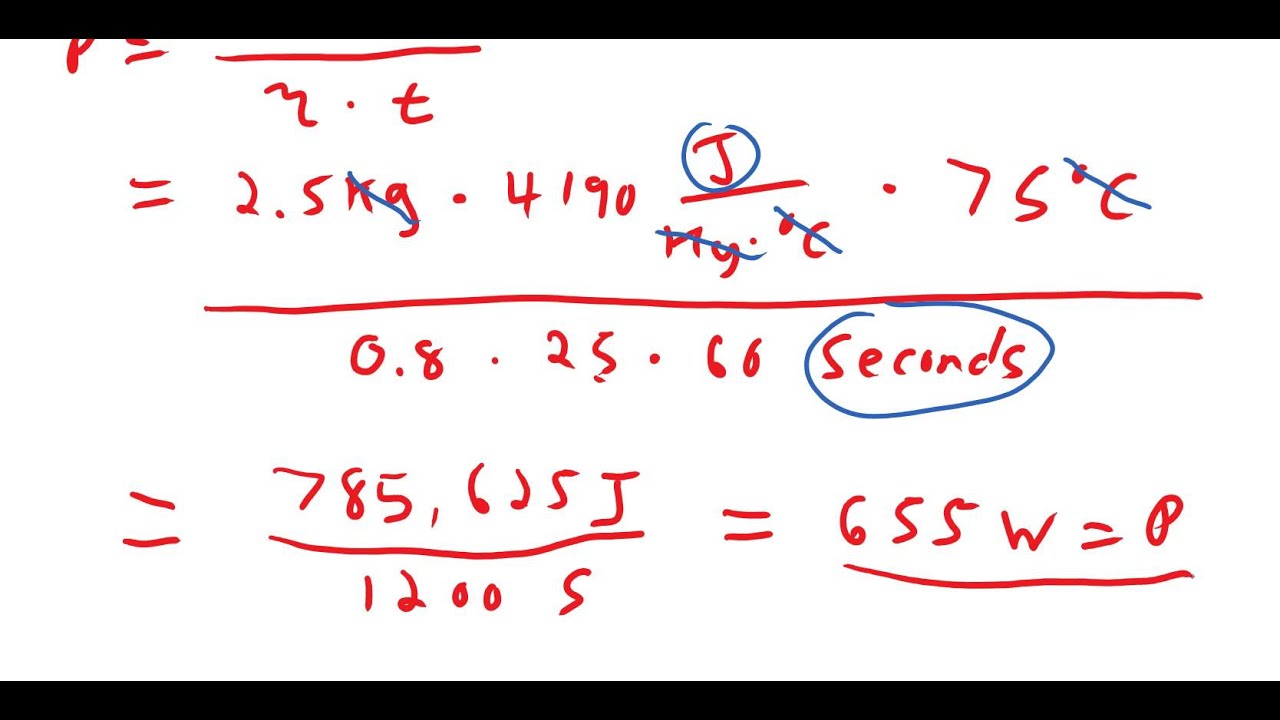 P =
η · t
= 2.5 kg · 4190 J / kg · °C · 75 °C
0.8 · 25 · 60 seconds
= 785,625 J / 1200 s = 655 W = P